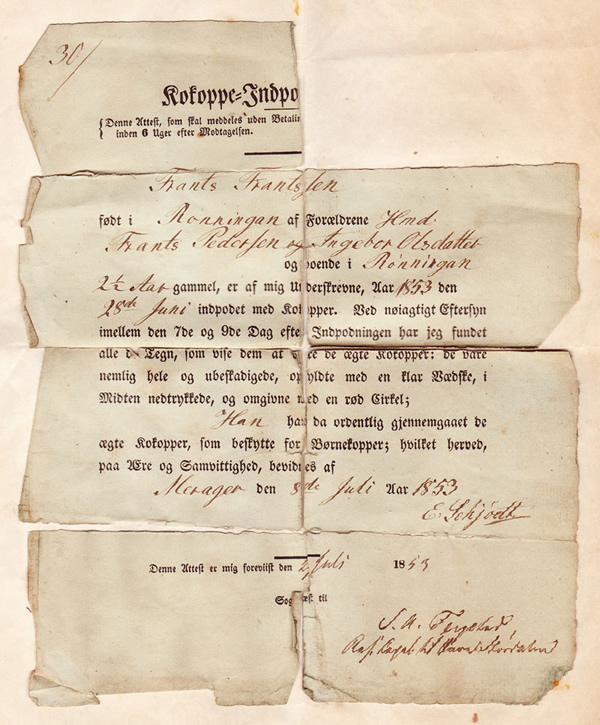 30/
Kokoppe=Indpo
Denne Attest, som skal meddeles uden Betalin
inden 6 Uger efter Modtagelsen.
Frants Frantssen
født i Rønningan af Forældrene Hmd.
Frants Pedersen og Ingebor Olsdatter
og boende i Rønningan
2½ Aar gammel, er af mig Underskrevne, Aar 1853 den
28de Juni indpodet med Kokopper. Ved nøiagtigt Eftersyn
imellem den 7de og 9de Dag efter Indpodningen har jeg fundet
alle de Tegn, som vise dem at være de ægte Kokopper: de vare
nemlig hele og ubeskadigede, opfyldte med en klar Vædske, i
Midten nedtrykkede, og omgivne med en rød Cirkel;
Han har da ordentlig gjennemgaaet de
ægte Kokopper, som beskytte for Børnekopper; hvilket herved,
paa Ære og Samvittighed, bevidnes af
Merager den 8de Juli Aar 1853
E. Schjødt
Denne Attest er mig foreviist den Juli 1853
Sognepræst til
S. A.